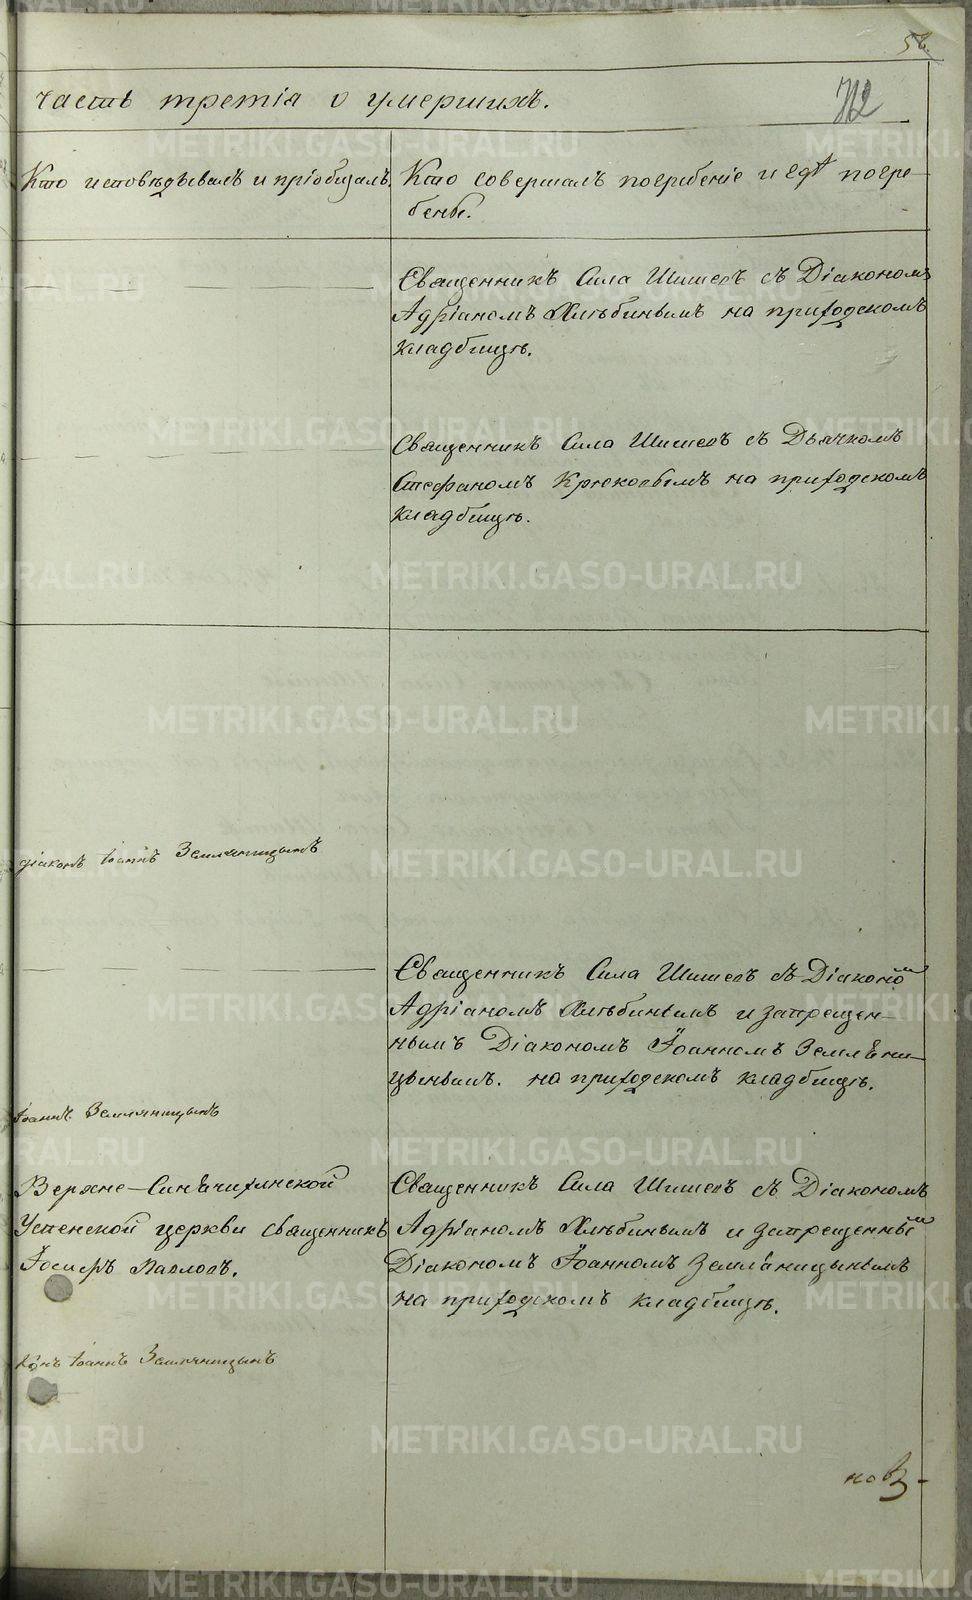 56.
часть третія о умершихъ.
712
Кто исповѣдывалъ и пріобщалъ.
Кто совершалъ погребеніе и гдѣ погре-
бены.
Священникъ Сила Шишевъ съ Діакономъ
Адріаномъ Хлѣбинымъ на приходскомъ
кладбищѣ.
Священникъ Сила Шишевъ съ Дьячкомъ
Стефаномъ Крюковымъ на приходскомъ
кладбищѣ.
діаконъ Іоаннъ Земляницынъ
Священникъ Сила Шишевъ съ Діакономъ
Адріаномъ Хлѣбинымъ и запрещен-
нымъ Діакономъ Іоанномъ Земляни-
цынымъ. на приходскомъ кладбищѣ.
Іоаннъ Земляницынъ
Верхне-Синячихинской
Успенской церкви священникъ
Іосифъ Павловъ.
Священникъ Сила Шишевъ съ Діакономъ
Адріаномъ Хлѣбинымъ и запрещеннымъ
Діакономъ Іоанномъ Земляницынымъ
на приходскомъ кладбищѣ.
Іоаннъ Земляницынъ
METRIKI.GASO-URAL.RU